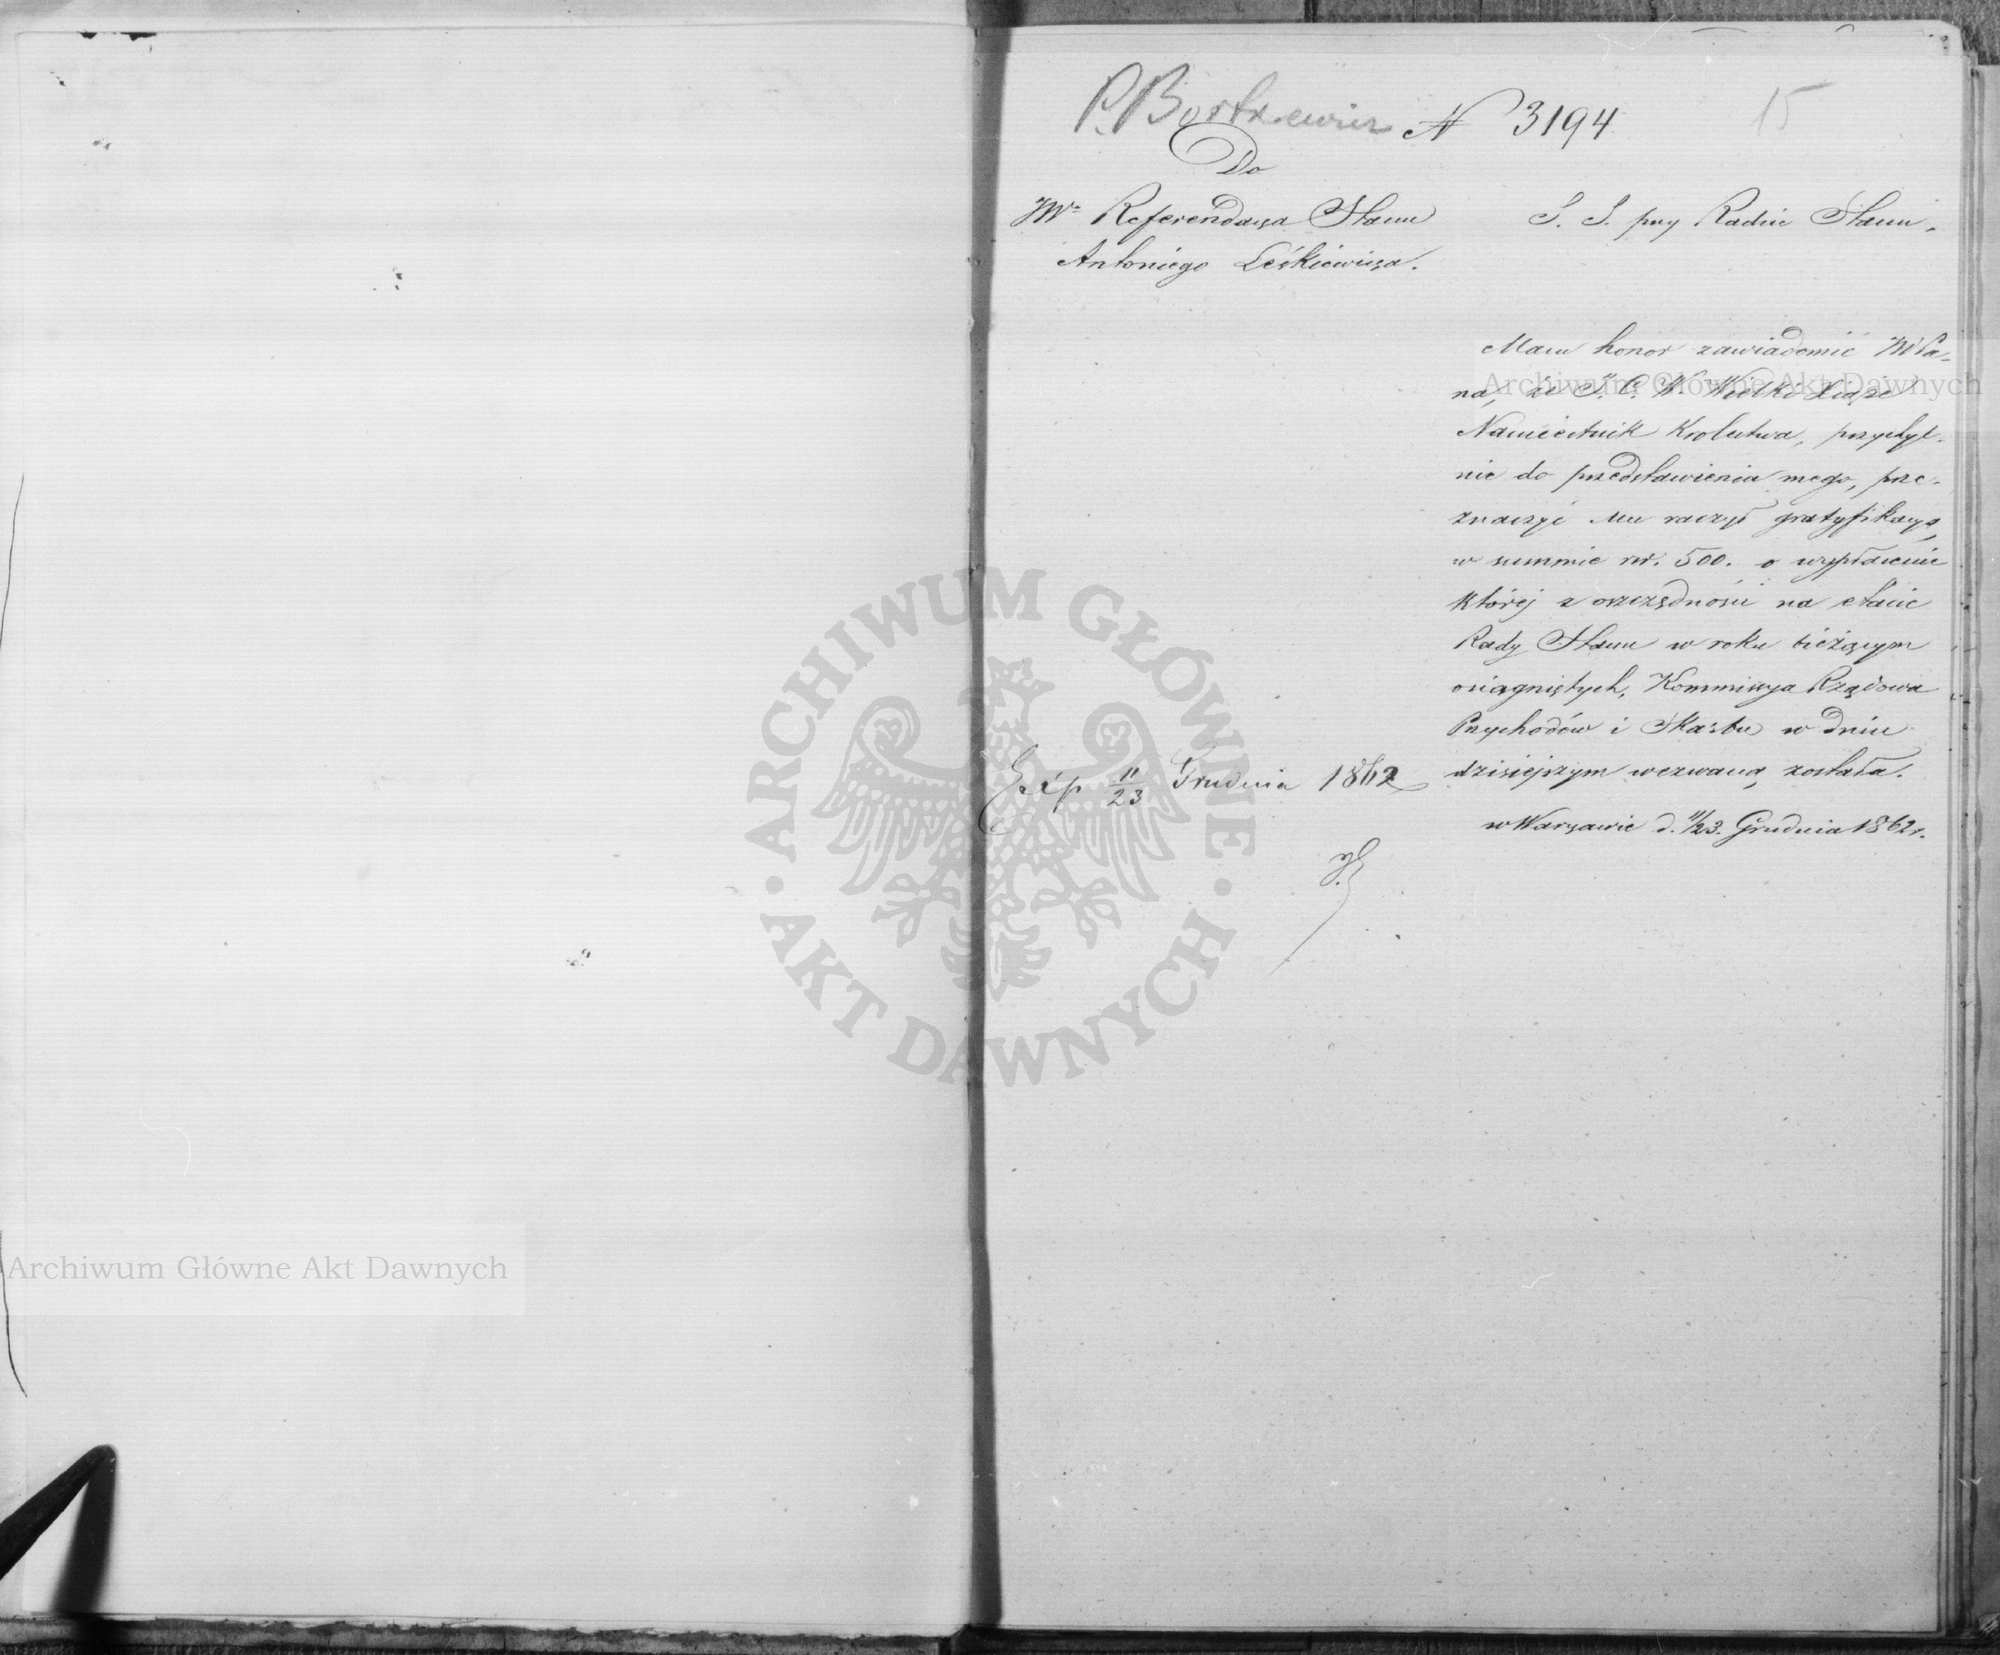 P. Bortkiewicz № 3194
15
Do
JW° Referendarza Stanu
Antoniego Leśkiewicza.
S. S. przy Radzie Stanu.
Mam honor zawiadomić JWPa-
na, że J. C. W. Wielki Xiąże
Namiestnik Królestwa, przychyl-
nie do przedstawienia mego, prze-
znaczyć Mu raczył gratyfikacyą
w summie rsr. 500. o wypłacenie
której z oszczędności na etacie
Rady Stanu w roku bieżącym
osiągniętych, Kommissya Rządowa
Przychodów i Skarbu w dniu
dzisiejszym wezwaną została.
w Warszawie d. 11/23. Grudnia 1862 r.
Exp 11/23 Grudnia 1862
Archiwum Główne Akt Dawnych
ARCHIWUM GŁÓWNE
AKT DAWNYCH
Archiwum Główne Akt Dawnych